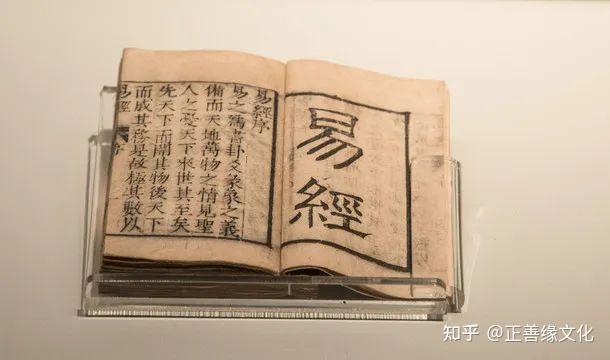 易經
易經序
易之爲書卦爻彖象之義
備而天地萬物之情見聖
人之憂天下來世其至矣
先天下而開其物後天下
而成其務是故極其數以
易經 序
知乎 @正善缘文化